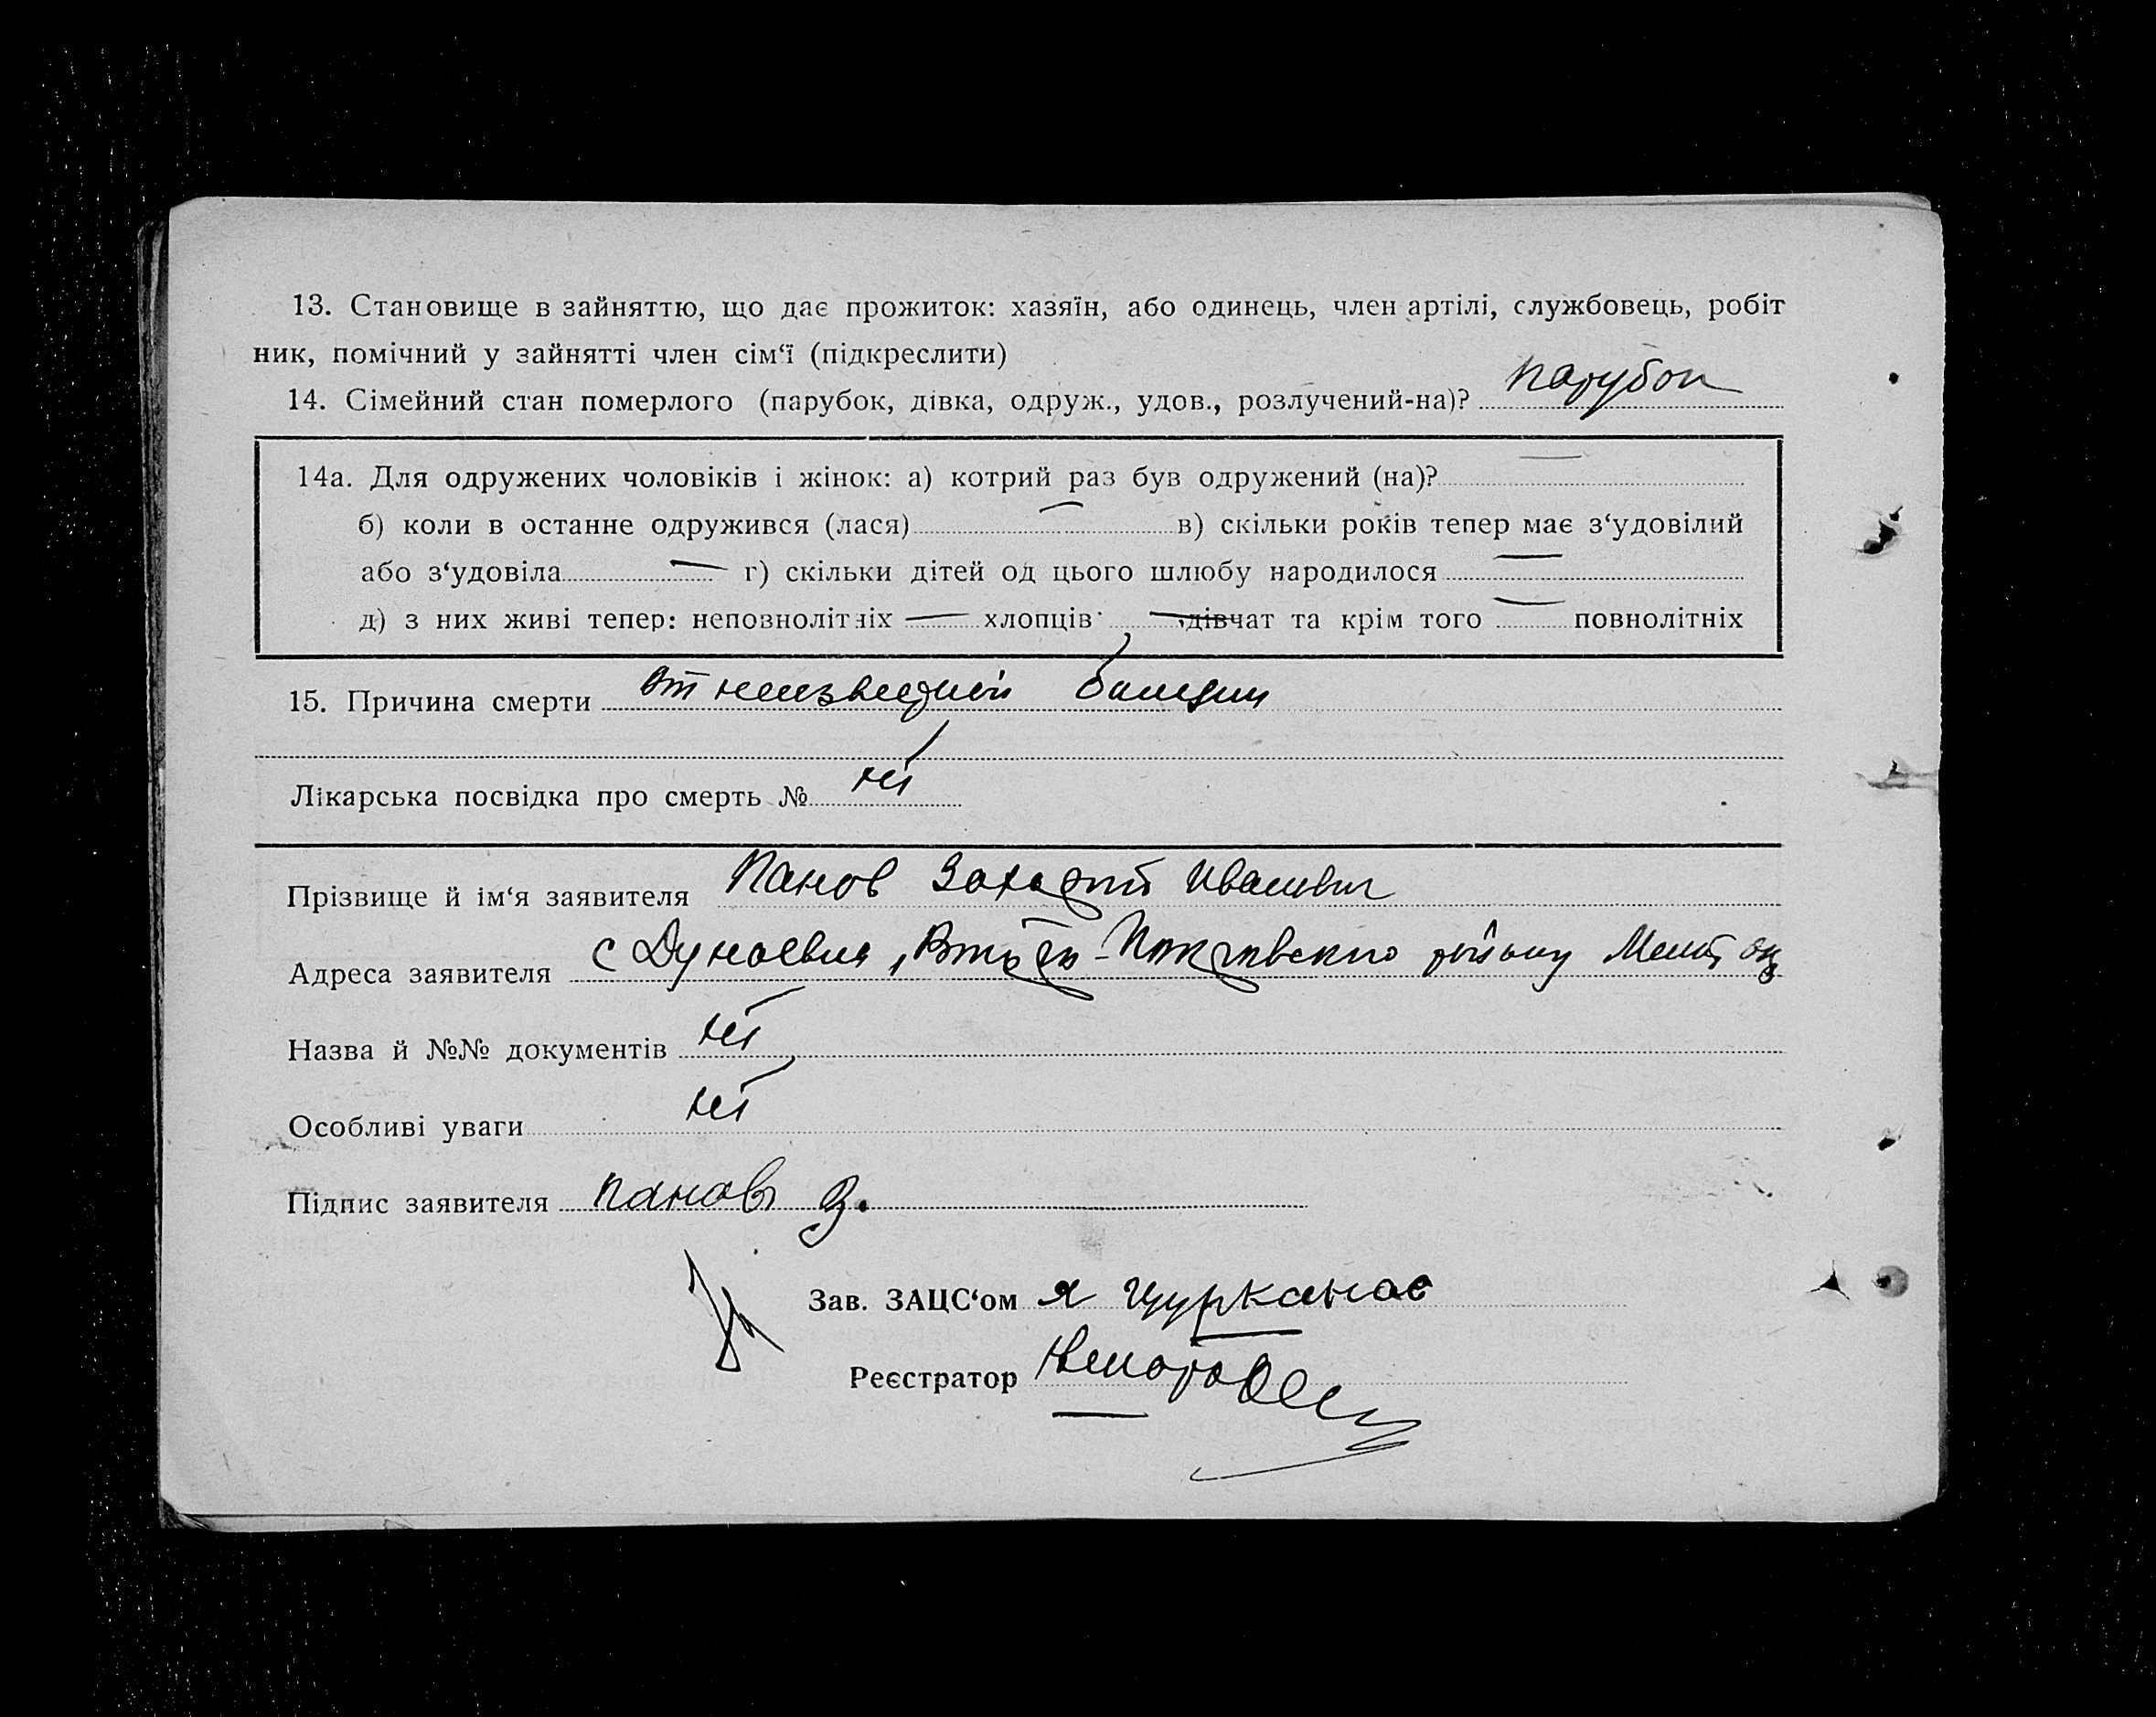 13. Становище в зайняттю, що дає прожиток: хазяїн, або одинець, член артілі, службовець, робіт
ник, помічний у зайнятті член сім‘ї (підкреслити)
14. Сімейний стан померлого (парубок, дівка, одруж., удов., розлучений-на)? парубок
14а. Для одружених чоловіків і жінок: а) котрий раз був одружений (на)? —
б) коли в останне одружився (лася) — в) скільки років тепер має з‘удовілий
або з‘удовіла — г) скільки дітей од цього шлюбу народилося —
д) з них живі тепер: неповнолітніх — хлопців — дівчат та крім того — повнолітніх
15. Причина смерти От неизвестной
Лікарська посвідка про смерть № ні
Прізвище й ім‘я заявителя Панов Захарий Иванович
Адреса заявителя с Дунаевка, району
Назва й №№ документів ні
Особливі уваги ні
Підпис заявителя Панов З.
Зав. ЗАЦС‘ом я цуркано
Реєстратор